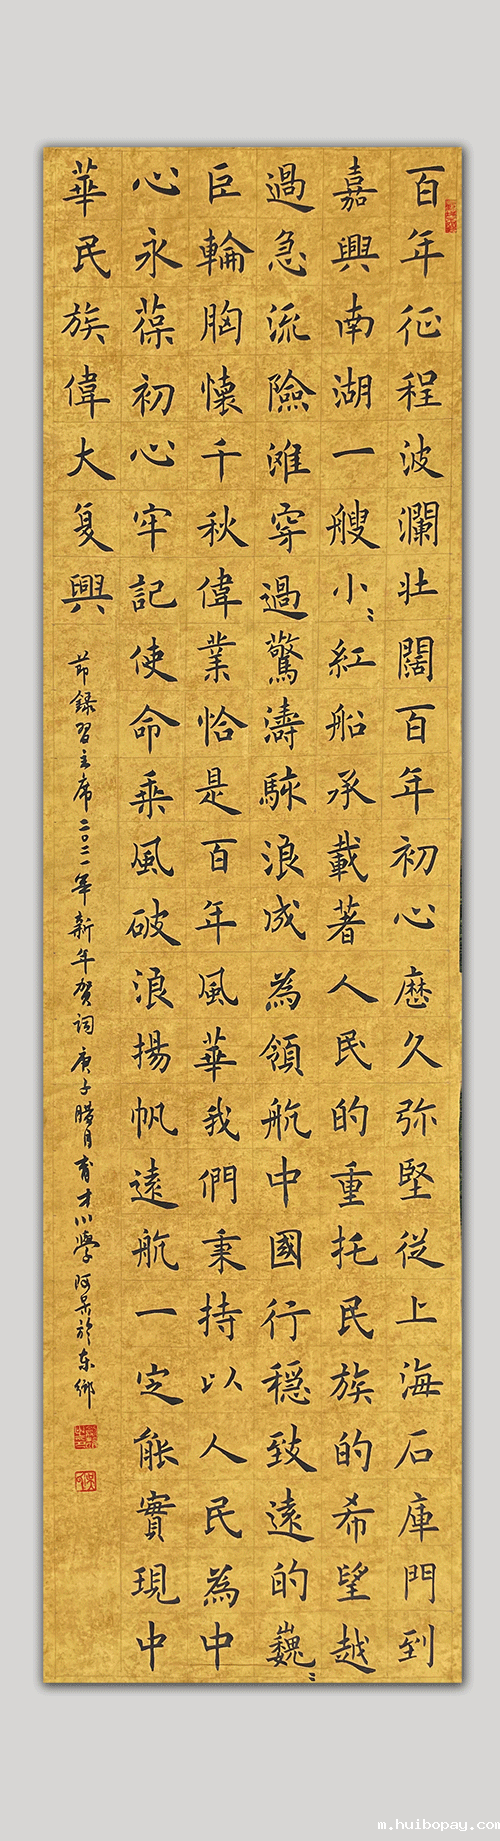 百年征程波瀾壮闊百年初心歷久弥堅從上海石庫門到
嘉興南湖一艘小〻紅船承載著人民的重托民族的希望越
過急流險滩穿過驚濤駭浪成為領航中國行穩致遠的巍〻
巨輪胸懷千秋偉業恰是百年風華我們秉持以人民為中
心永葆初心牢記使命乘風破浪揚帆遠航一定能實現中
華民族偉大复興
節録習主席二〇二一年新年贺詞庚子腊月育才小學阿呆於东鄉
m.huibopay.com